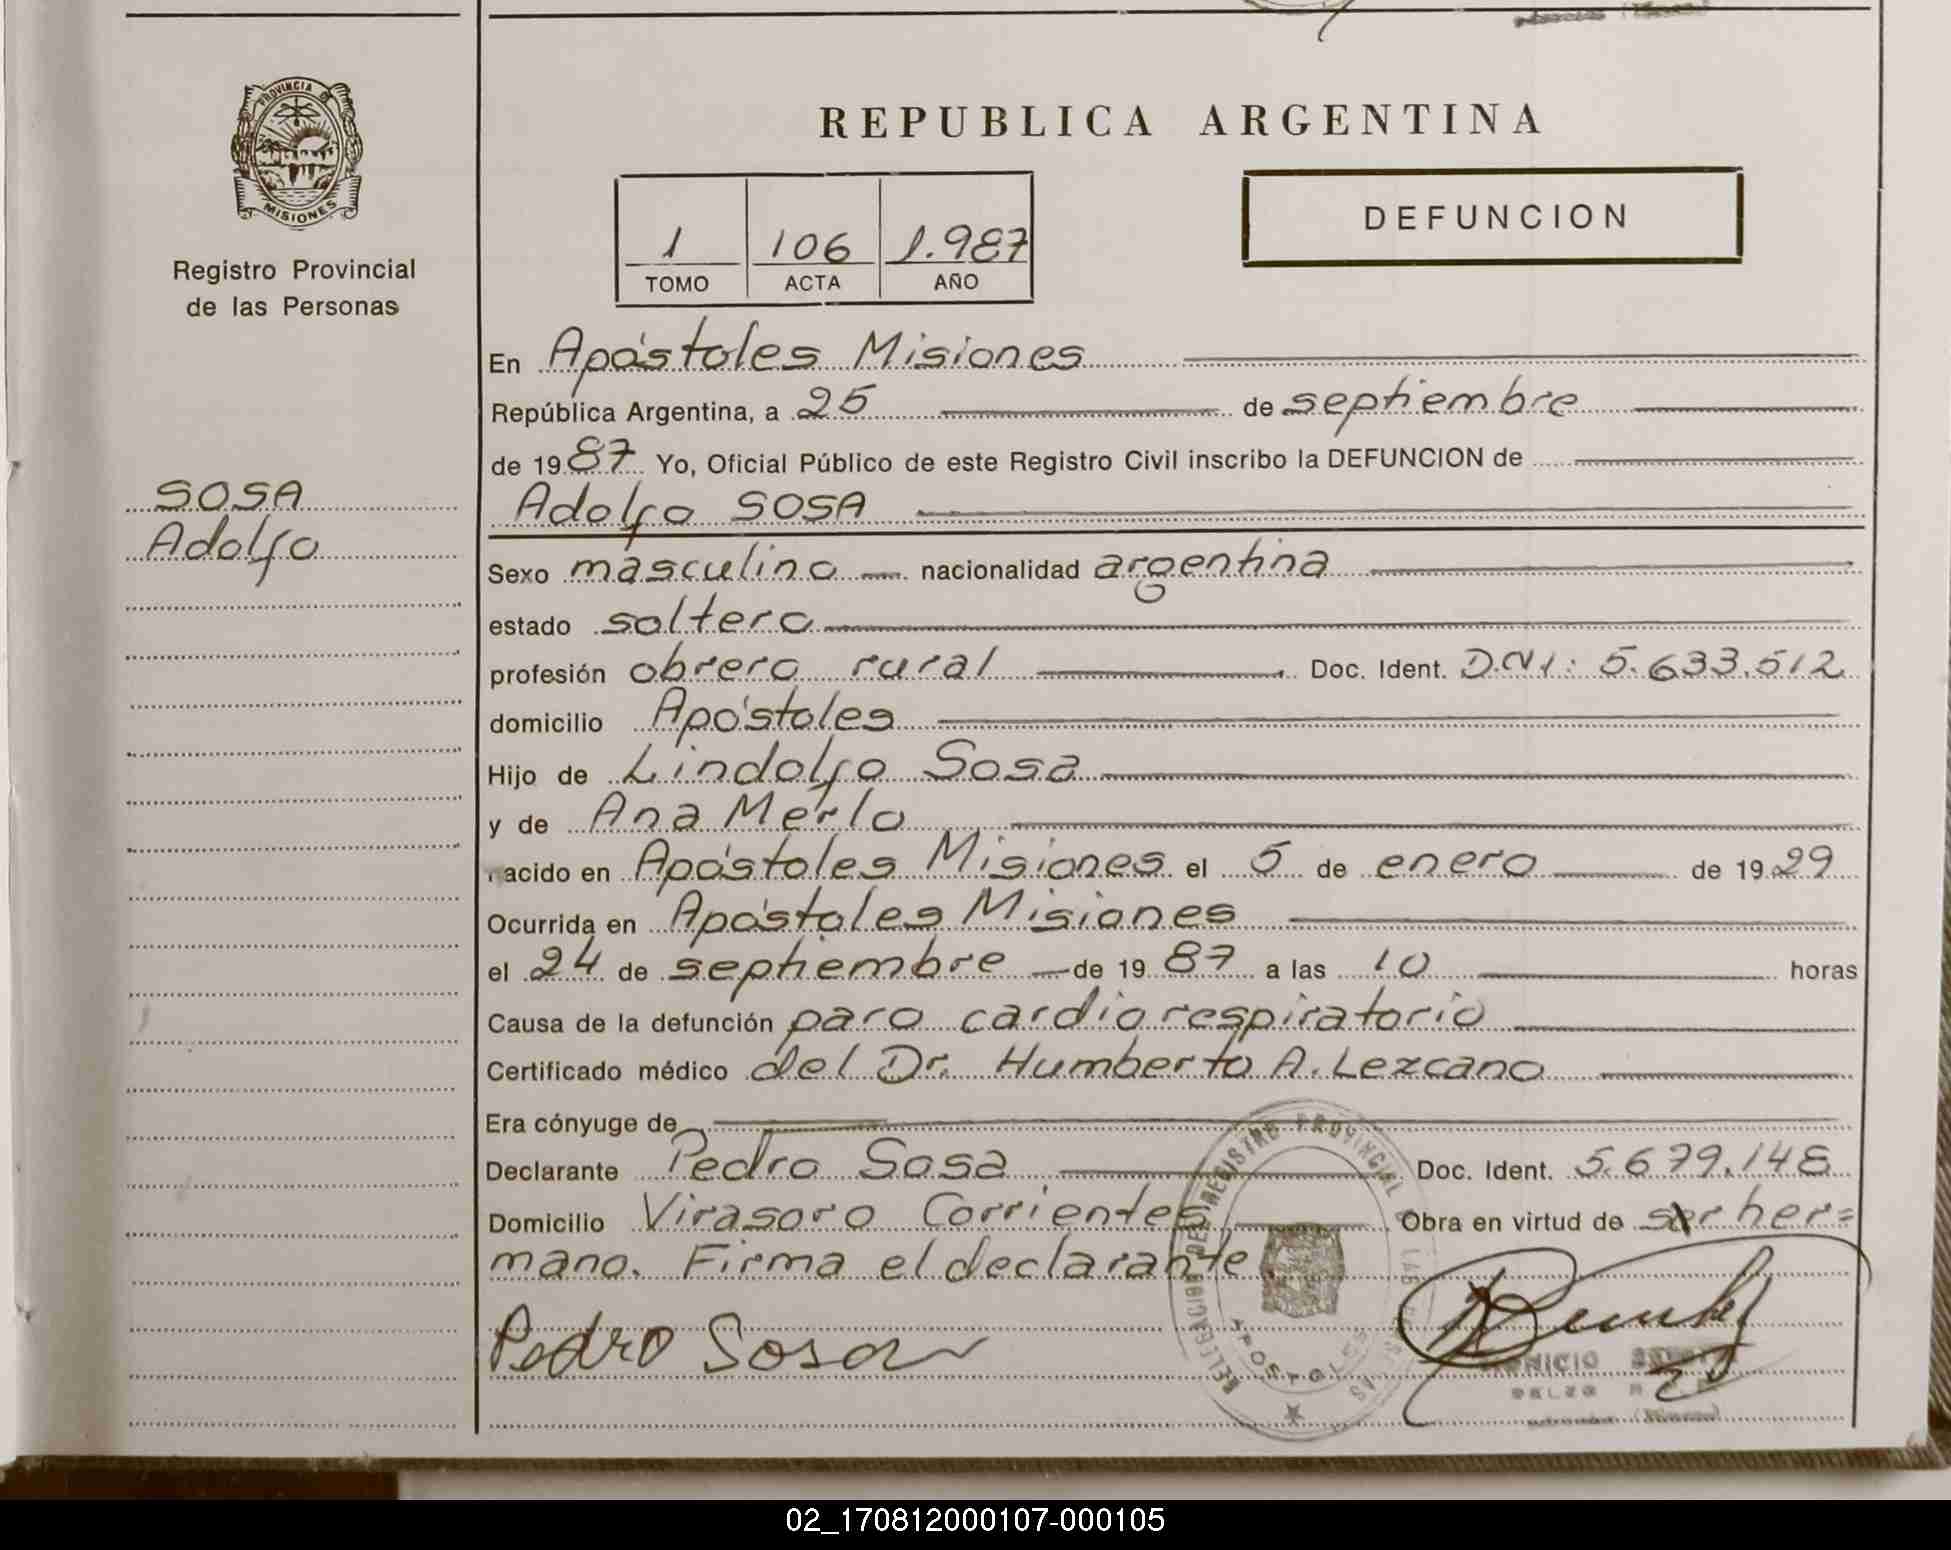 PROVINCIA DE
MISIONES
Registro Provincial
de las Personas
SOSA
Adolfo
REPUBLICA ARGENTINA
DEFUNCION
1 106 1.987
TOMO ACTA AÑO
En Apóstoles Misiones
República Argentina, a 25 de septiembre
de 1987 Yo, Oficial Público de este Registro Civil inscribo la DEFUNCION de
Adolfo SOSA
Sexo masculino nacionalidad argentina
estado soltero
profesión obrero rural Doc. Ident. D.N.I: 5.633.512
domicilio Apóstoles
Hijo de Lindolfo Sosa
y de Ana Merlo
nacido en Apóstoles Misiones el 5 de enero de 1929
Ocurrida en Apóstoles Misiones
el 24 de septiembre de 1987 a las 10 horas
Causa de la defunción paro cardiorespiratorio
Certificado médico del Dr. Humberto A. Lezcano
Era cónyuge de
Declarante Pedro Sosa Doc. Ident. 5.679.148
Domicilio Virasoro Corrientes Obra en virtud de ser her=
mano. Firma el declarante.
Pedro Sosa
DELEGACION DEL REGISTRO PROVINCIAL DE LAS PERSONAS
APOSTOLES
02_170812000107-000105